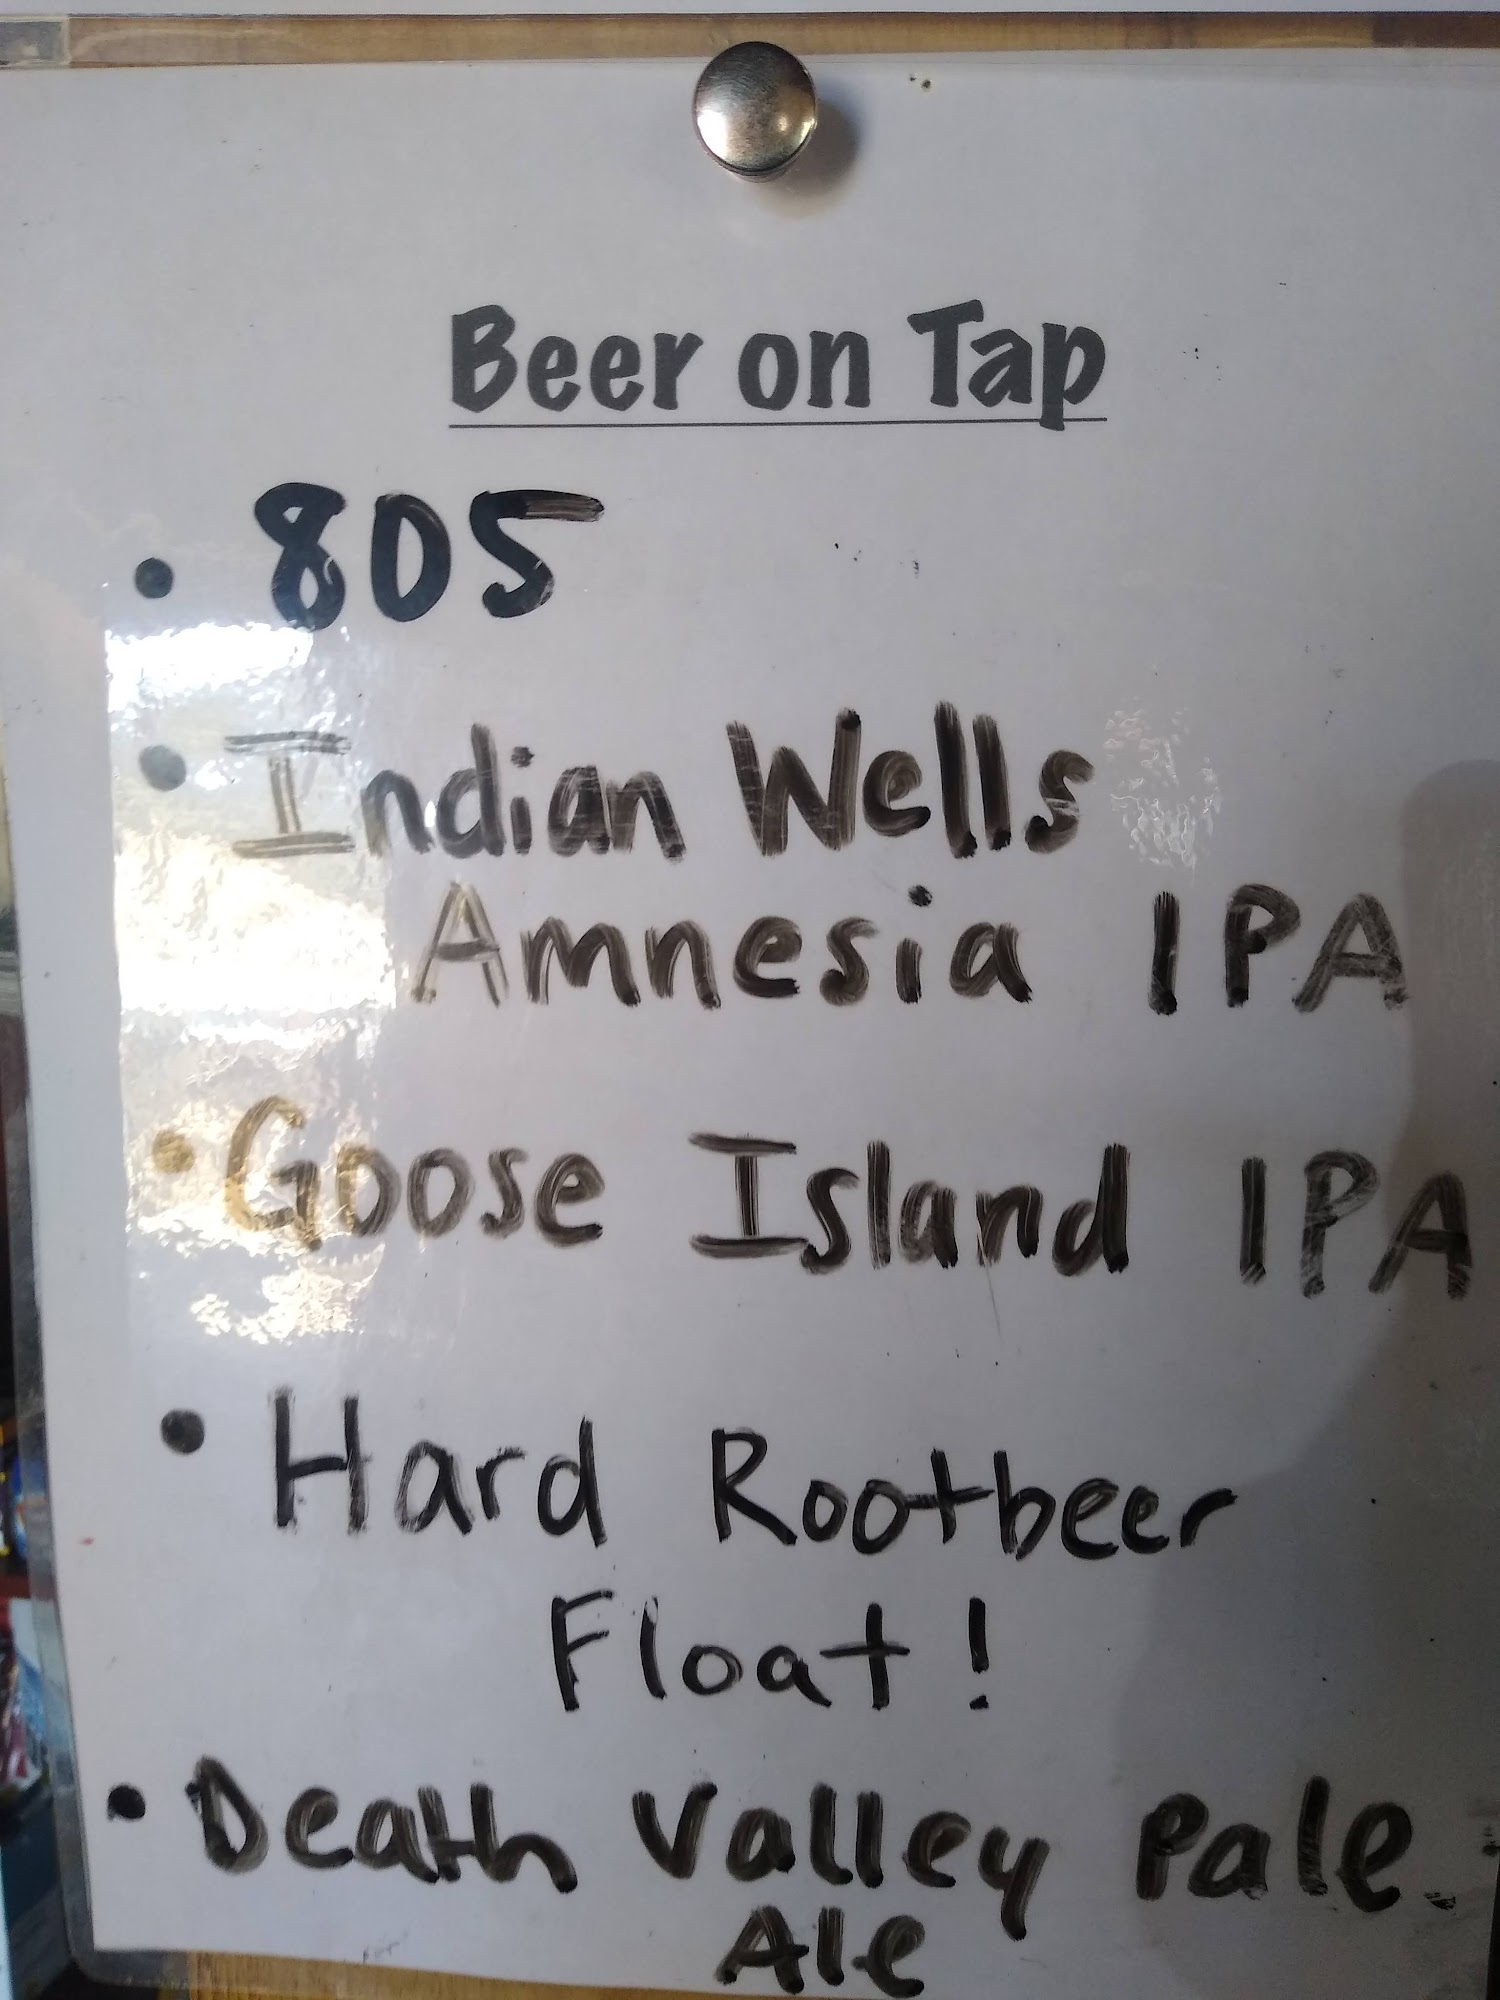 Beer on Tap
• 805
• Indian Wells
Amnesia IPA
• Goose Island IPA
• Hard Rootbeer
Float!
• Death Valley Pale
Ale